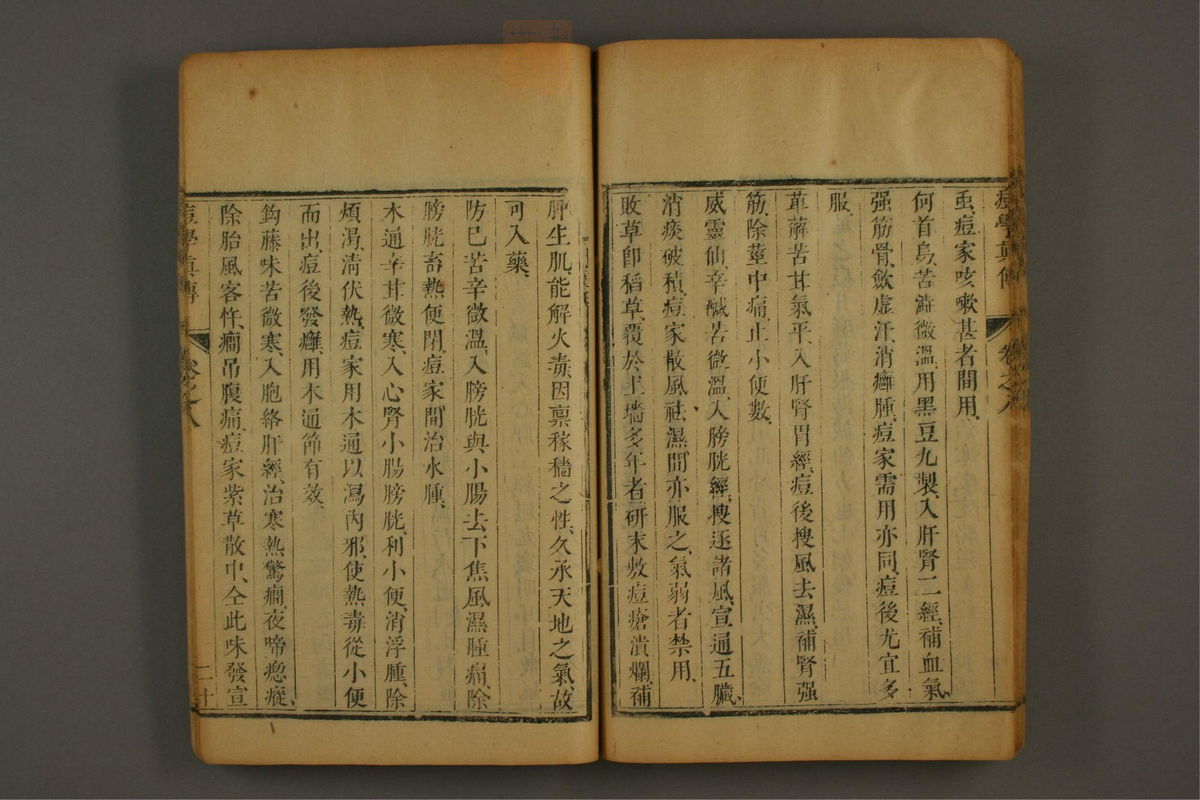 痘學真傳 卷之八
虱、痘家咳嗽甚者間用、
何首烏、苦澁微溫、用黑豆九製、入肝腎二經、補血氣
強筋骨、歛虛汗、消癰腫、痘家需用亦同、痘後尤宜多
服、
萆薢苦甘氣平、入肝腎胃經、痘後搜風去濕、補腎強
筋、除莖中痛、止小便數、
威靈仙、辛鹹苦微溫、入膀胱經、搜逐諸風、宣通五臟、
消痰破積、痘家散風祛濕間亦服之、氣弱者禁用、
敗草即稻草、覆於土墻多年者、研末敷痘瘡潰爛、補
脾生肌、能解火毒、因稟稼穡之性、久承天地之氣、故
可入藥、
防已苦辛微溫、入膀胱與小腸、去下焦風濕腫痛、除
膀胱畜熱便閉、痘家間治水腫、
木通辛甘微寒、入心腎小腸膀胱、利小便、消浮腫、除
煩渴、清伏熱、痘家用木通以瀉內邪、使熱毒從小便
而出、痘後發癰、用木通節有效、
鈎藤味苦微寒、入胞絡肝經、治寒熱驚癎、夜啼瘛瘲、
除胎風客忤、癎吊腹痛、痘家紫草散中、仝此味發宣
痘學真傳 卷之八 二十